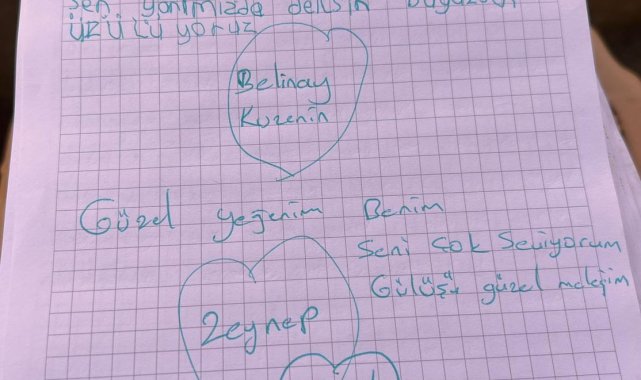 sen yanımızda delsin
üzülüyoruz
Belinay
Kuzenin
Güzel yeğenim Benim
Seni çok Seviyorum
Gülüşü güzel meleğim
Zeynep